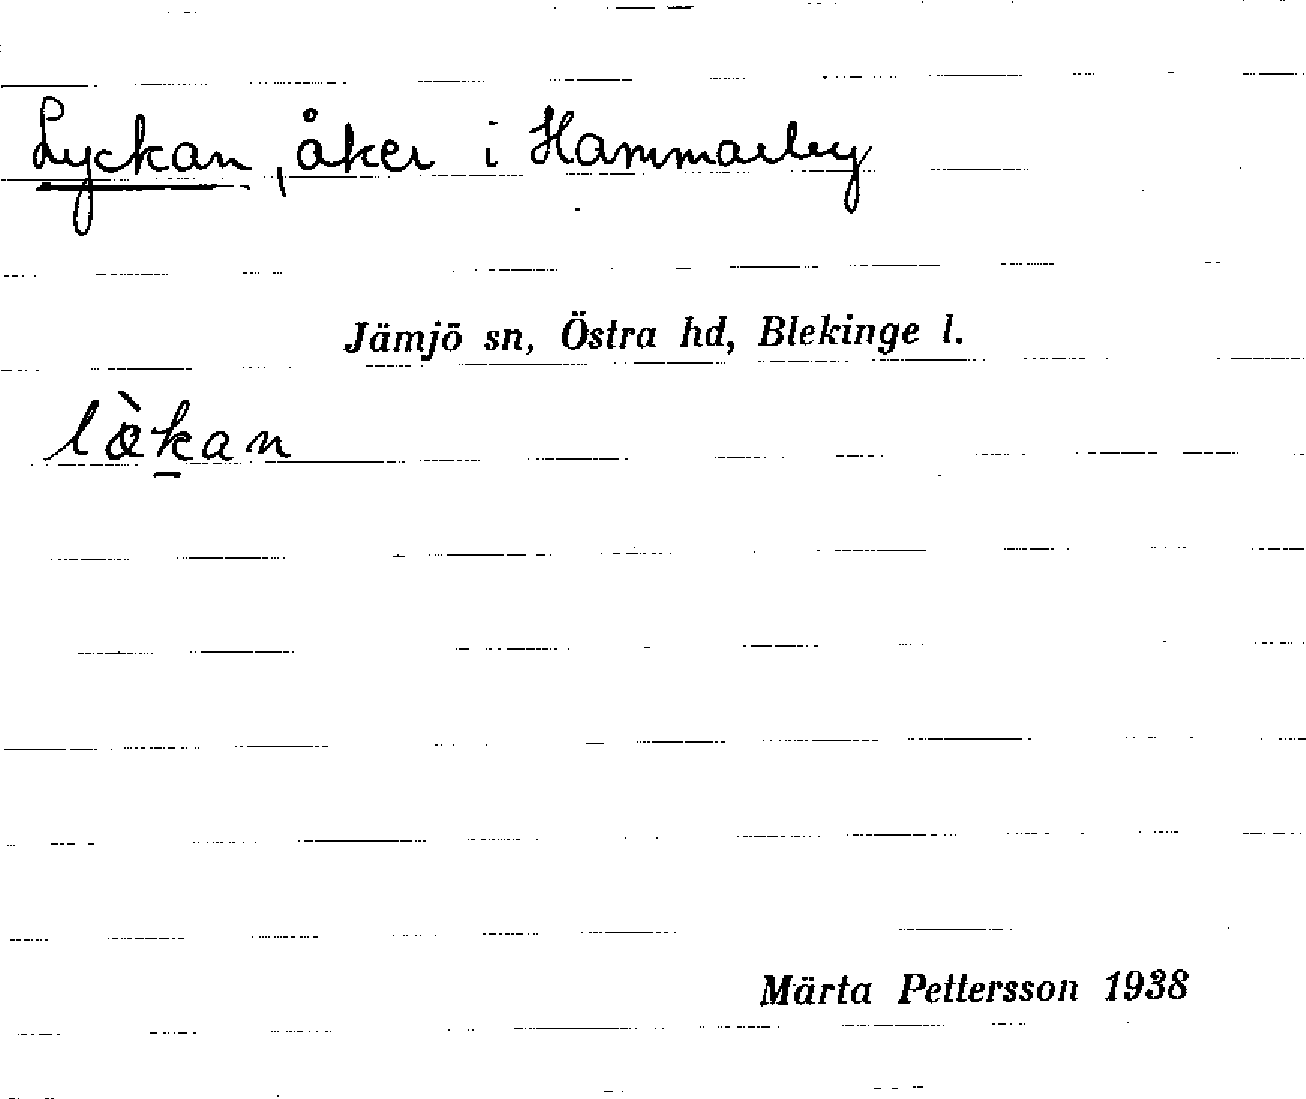 Lyckan, åker i Hammarby
Jämjö sn, Östra hd, Blekinge l.
lœ̀k̲an
Märta Pettersson 1938